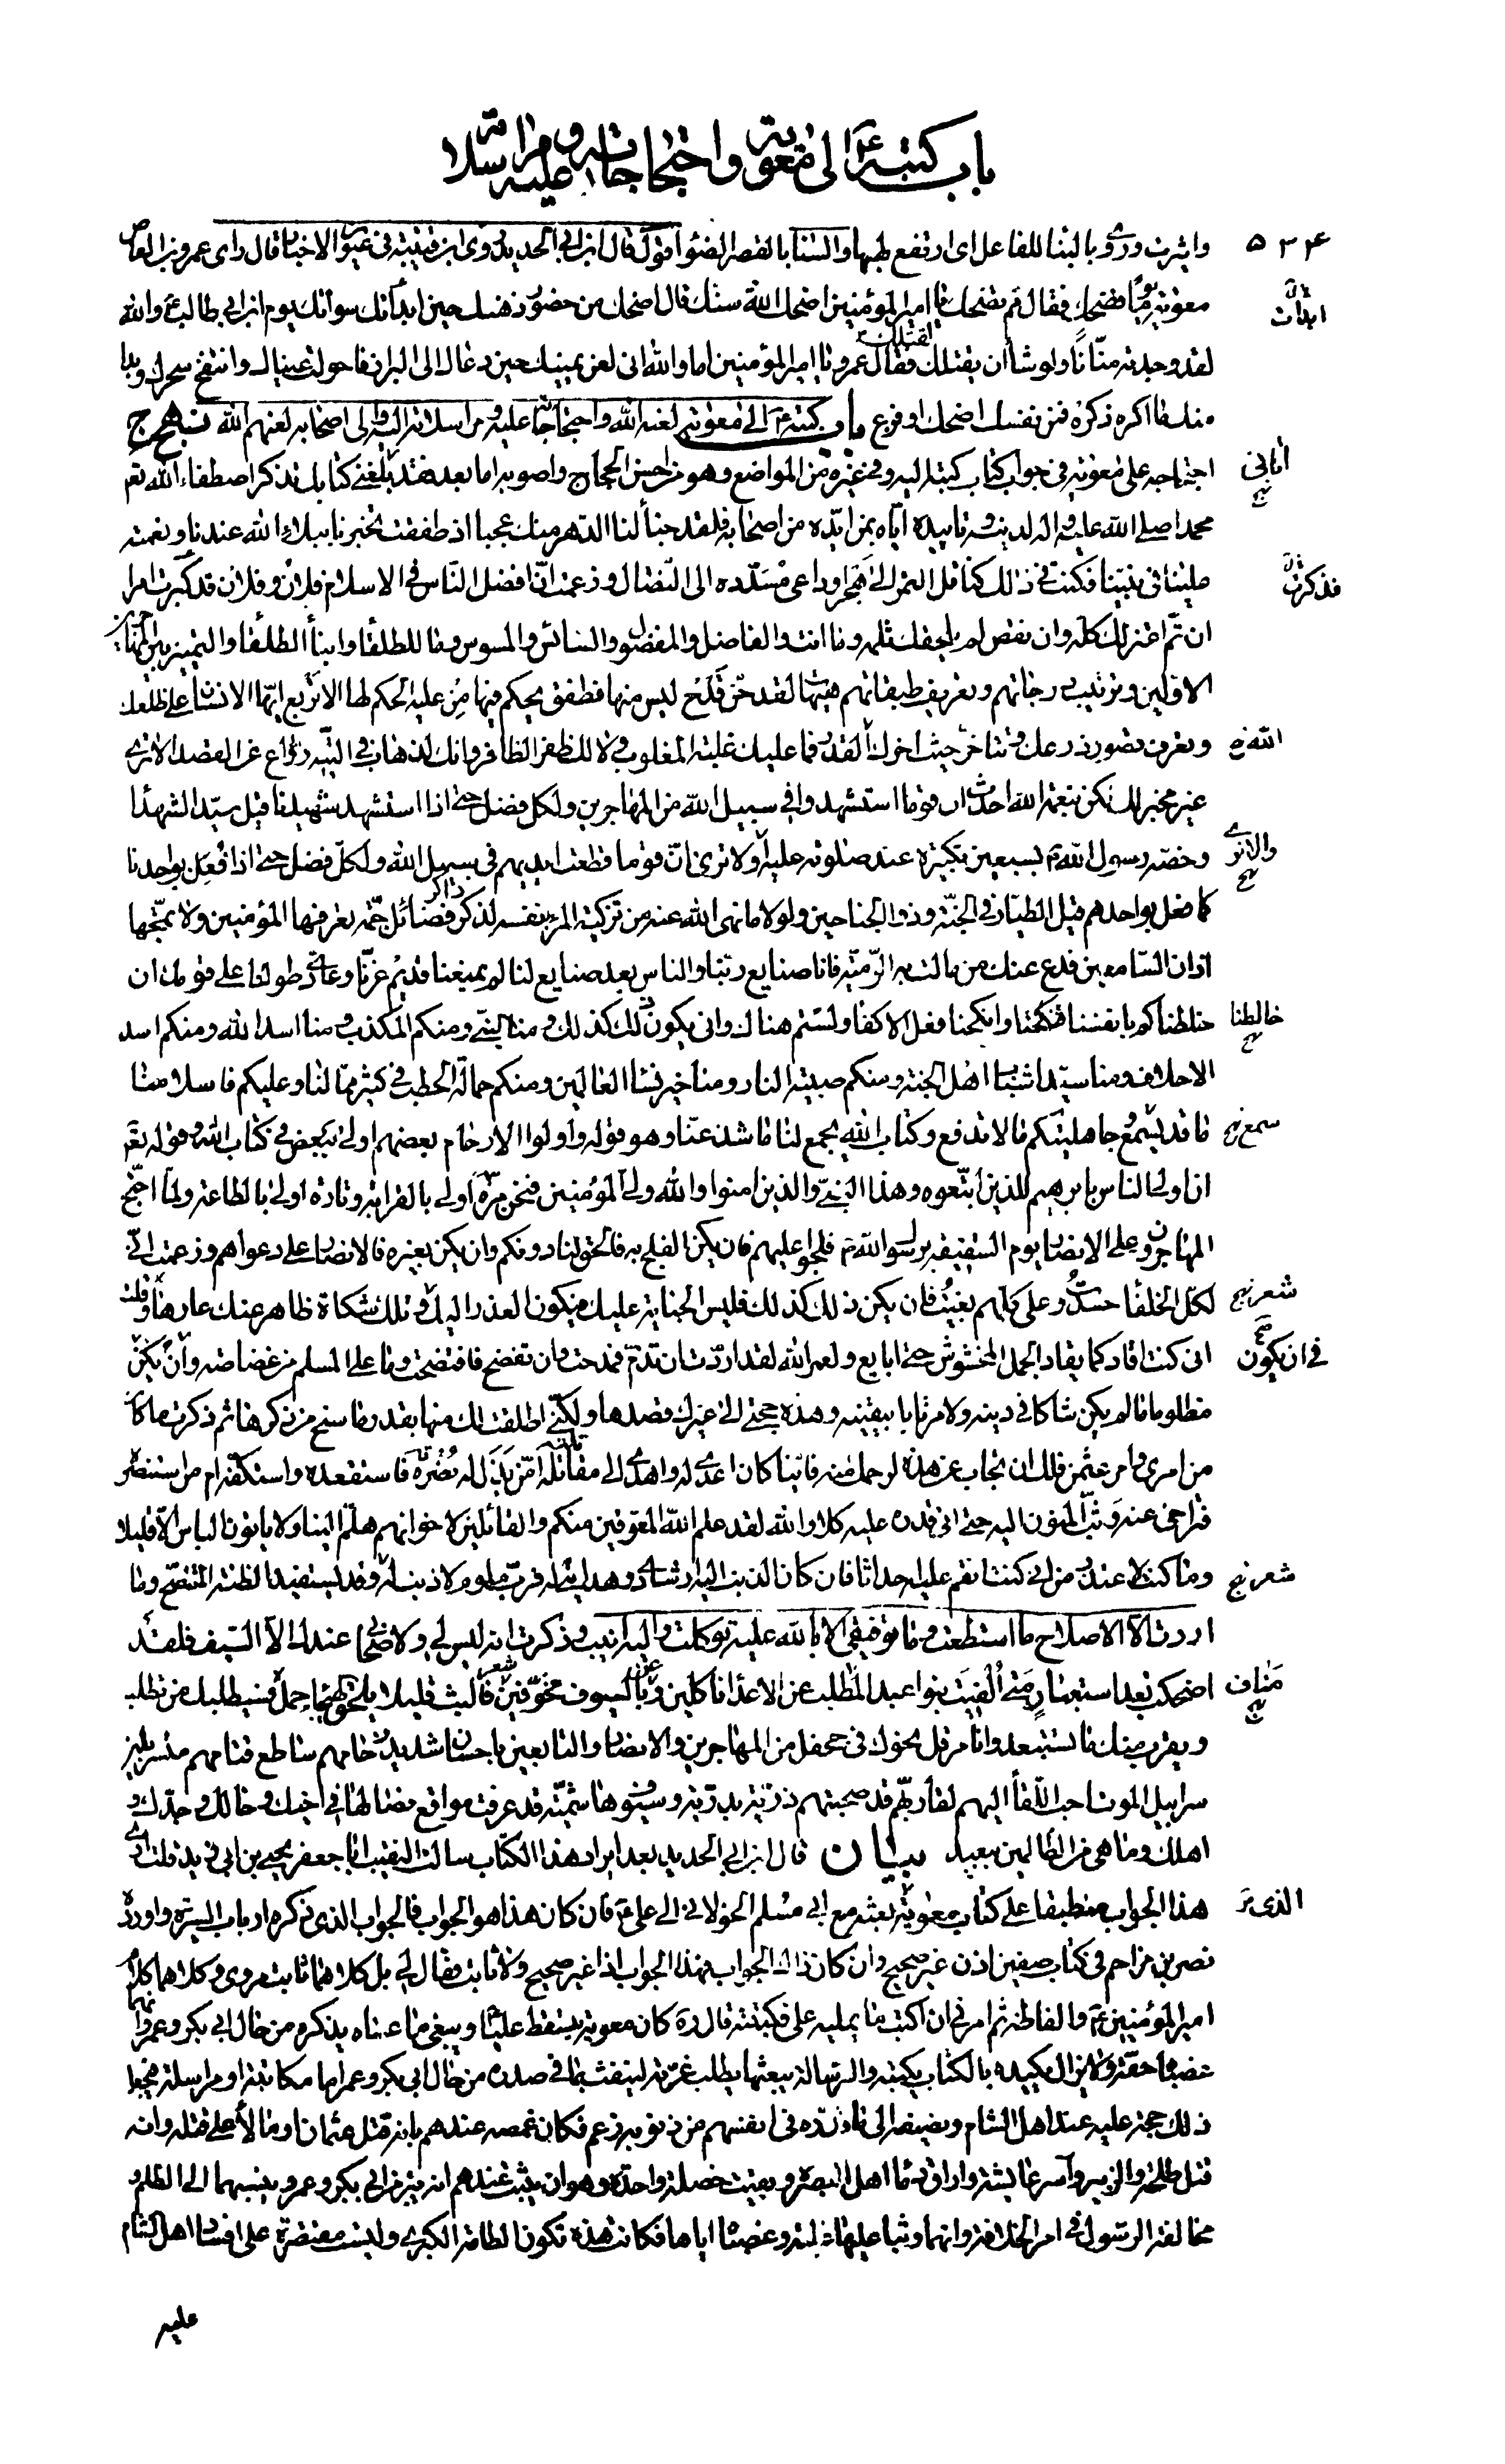 باب كتبه ع الى معوية واحتجاجاته عليه ومراسلاته
٥٣٤
واثرت وروى بالبناء للفاعل اى ارتفع لهبها والسنا بالقصر الضوء اقول قال ابن ابى الحديد روى ابن قتيبة فى عيون الاخبار قال راى عمرو بن العاص
معوية يوما يضحك فقال مم تضحك يا امير المؤمنين اضحك الله سنك قال اضحك من حضور ذهنك حين ابدائك سوأتك يوم ابن ابى طالب ع والله
ابدات
لقد وجدته منانا ولو شاء ان يقتلك لقتلك فقال عمرو يا امير المؤمنين اما والله انى لعن يمينك حين دعاك الى البراز فاحولت عيناك وانتفخ سحرك وبدا
منك ما اكره ذكره فمن نفسك اضحك او فدع باب كتبه ع الى معوية لعنه الله واحتجاجاته عليه ومراسلاته اليه والى اصحابه لعنهم الله نهج
احتجاجه على معوية فى جواب كتاب كتبه اليه وفى غيره من المواضع وهو من احسن الحجاج واصوبه اما بعد فقد بلغنى كتابك تذكر اصطفاء الله تع
اتانى نهج
محمدا صلى الله عليه واله لدينه وتاييده اياه بمن ايده من اصحابه فلقد خبأ لنا الدهر منك عجبا اذ طفقت تخبرنا ببلاء الله عندنا ونعمته
علينا فى نبينا فكنت فى ذلك كناقل التمر الى هجر وداعى مسدده الى النضال وزعمت ان افضل الناس فى الاسلام فلان وفلان فذكرت امرا
فذكرت
ان تم اعتزلك كله وان نقص لم يلحقك ثلمه وما انت والفاضل والمفضول والسائس والمسوس وما للطلقا وابنأ الطلقا والتميز بين المهاجرين
الاولين وترتيب درجاتهم وتعريف طبقاتهم هيهات لقد حن قدح ليس منها وطفق يحكم فيها من عليه الحكم لها الا تربع ايها الانسان على ظلعك
وتعرف قصور ذرعك وتتاخر حيث اخرك القدر فما عليك غلبة المغلوب ولا لك ظفر الظافر وانك لذهاب فى التيه رواغ عن القصد الا ترى
غير مخبر لك لكن بنعمة الله احدث ان قوما استشهدوا فى سبيل الله من المهاجرين ولكل فضل حتى اذا استشهد شهيدنا قيل سيد الشهدا
وخصه رسول الله ص بسبعين تكبيرة عند صلوته عليه اولا ترى ان قوما قطعت ايديهم فى سبيل الله ولكل فضل حتى اذا فعل بواحدنا
كما فعل بواحدهم قيل الطيار فى الجنة وذو الجناحين ولولا ما نهى الله عنه من تزكية المرء نفسه لذكر ذاكر فضائل جمة تعرفها المؤمنين ولا تمجها
اذان السامعين فدع عنك من مالت به الرمية فانا صنايع ربنا والناس بعد صنايع لنا لم يمنعنا قديم عزنا وعادى طولنا على قومك ان
خلطناكم بانفسنا فنكحنا وانكحنا فعل الاكفا ولستم هناك وانى يكون ذلك كذلك ومنا النبى ومنكم المكذب ومنا اسد الله ومنكم اسد
خالطنا
الاحلاف ومنا سيدا شباب اهل الجنة ومنكم صبية النار ومنا خير نسا العالمين ومنكم حمالة الحطب فى كثير مما لنا وعليكم فاسلامنا
ما قد يسمع وجاهليتكم ما لا تدفع وكتاب الله يجمع لنا ما شذ عنا وهو قوله واولوا الارحام بعضهم اولى ببعض فى كتاب الله وقوله تع
ان اولى الناس بابرهيم للذين اتبعوه وهذا النبى والذين امنوا والله ولى المؤمنين فنحن مرة اولى بالقرابة وتارة اولى بالطاعة ولما احتج
المهاجرون على الانصار يوم السقيفة برسول الله ص فلجوا عليهم فان يكن الفلج به فالحق لنا دونكم وان يكن بغيره فالانصار على دعواهم وزعمت انى
لكل الخلفا حسدت وعلى كلهم بغيت فان يكن ذلك كذلك فليس الجناية عليك فيكون العذر اليك وتلك شكاة ظاهر عنك عارها وقلت
انى كنت اقاد كما يقاد الجمل المخشوش حتى ابايع ولعمر الله لقد اردت ان تذم فمدحت وان تفضح فافتضحت وما على المسلم من غضاضة فى ان يكون
مظلوما ما لم يكن شاكا فى دينه ولا مرتابا بيقينه وهذه حجتى الى غيرك قصدها ولكنى اطلقت لك منها بقدر ما سنح من ذكرها ثم ذكرت ما كان
من امرى وامر عثمن فلك ان تجاب عن هذه لرحمك منه فاينا كان اعدى له واهدى الى مقاتله امن بذل له نصرته فاستقعده واستكفه ام من استنصره
فتراخى عنه وبث المنون اليه حتى اتى قدره عليه كلا والله لقد علم الله المعوقين منكم والقائلين لاخوانهم هلم الينا ولا ياتون الباس الا قليلا
وما كنت لاعتذر من انى كنت انقم عليه احداثا فان كان الذنب اليه ارشادى وهدايتى له فرب ملوم لا ذنب له وقد يستفيد الظنة المتنصح وما
اردت الا الاصلاح ما استطعت وما توفيقى الا بالله عليه توكلت واليه انيب وذكرت انه ليس لى ولاصحابى عندك الا السيف فلقد
اضحكت بعد استعبار متى الفيت بنوا عبد المطلب عن الاعداء ناكلين وبالسيوف مخوفين فالبث قليلا يلحق الهيجاء حمل فسيطلبك من تطلب
مناف
ويقرب منك ما تستبعد وانا مرقل نحوك فى جحفل من المهاجرين والانصار والتابعين باحسان شديد زحامهم ساطع قتامهم متسربلين
سرابيل الموت احب اللقأ اليهم لقاء ربهم قد صحبتهم ذرية بدرية وسيوف هاشمية قد عرفت مواقع نصالها فى اخيك وخالك وجدك و
اهلك وما هى من الظالمين ببعيد بيان قال ابن ابى الحديد بعد ايراد هذا الكتاب سالت النقيب ابا جعفر يحيى بن ابى زيد قلت ارى
هذا الجواب منطبقا على كتاب معوية بعثه مع ابى مسلم الخولانى الى على ع فان كان هذا هو الجواب فالجواب الذى ذكره ارباب السيرة واورده
نصر بن مزاحم فى كتاب صفين اذن غير صحيح وان كان ذاك الجواب فهذا الجواب اذا غير صحيح ولا ثابت فقال لى بل كلاهما ثابت مروى وكلاهما كلام
امير المؤمنين ع والفاظه ثم امرنى ان اكتب ما يمليه على فكتبته قال ره كان معوية يتسقط عليا ويبغى ما عساه يذكره من حال ابى بكر وعمر وانهما
غصباه حقه ولا يزال يكيده بالكتاب يكتبه والرسالة يبعثها يطلب غرته لينفث بما فى صدره من حال ابى بكر وعمر اما مكاتبة او مراسلة فيجعل
ذلك حجة عليه عند اهل الشام ويضيفه الى ما قرره فى انفسهم من ذنوبه زعم فكان غمصه عندهم بانه قتل عثمان او مالأ على قتله وانه
قتل طلحة والزبير واسر عايشة واراق دماء اهل البصرة وبقيت خصلة واحدة وهو ان يثبت عندهم انه يتبرا من ابى بكر وعمر وينسبهما الى الظلم و
مخالفة الرسول فى امر الخلافة وانهما وثبا عليها غلبة وغصباه اياها فكانت هذه تكون الطامة الكبرى وليست مقتصرة على افساد اهل الشام
عليه